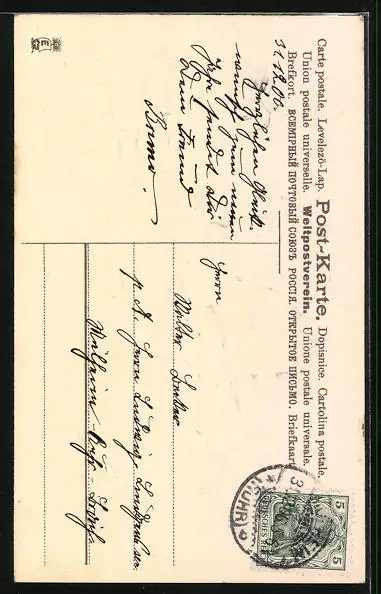 Carte postale. Levelező-Lap. Post-Karte. Dopisnice. Cartolina postale.
Union postale universelle. Weltpostverein. Unione postale universale.
Brefkort. ВСЕМІРНЫЙ ПОЧТОВЫЙ СОЮЗЪ РОССІЯ. ОТКРЫТОЕ ПИСЬМО. Briefkaart
31.12.06.
Herzlichen Glück-
wunsch zum neuen
Jahr sendet Dir
Dein Freund
Bruno.
Herrn
Walter
p. A. Herrn Ludwig
Mülheim Ruhr
5 5
DEUTSCHES REICH
(RUHR)
E